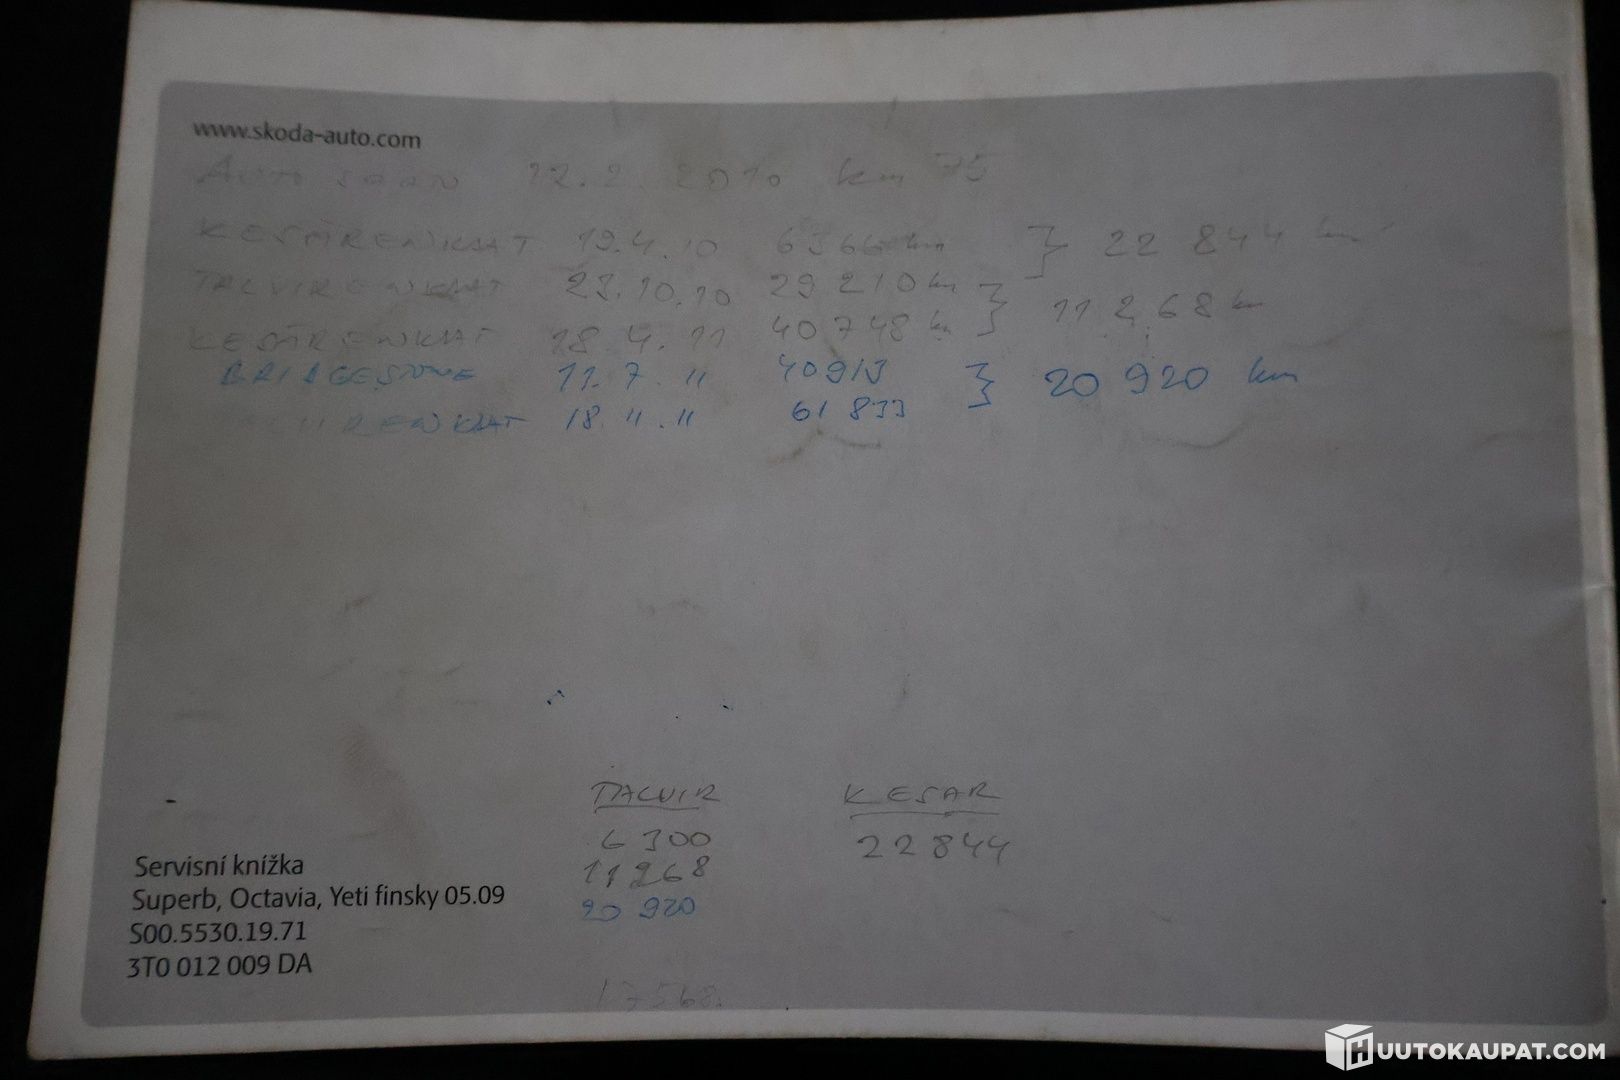 www.skoda-auto.com
AUTO SAATU 12.2. 2010 km 75
KESÄRENKAAT 19.4.10 6366 km } 22 844 km
TALVIRENKAAT 23.10.10 29 210 km } 11 268 km
KESÄRENKAAT 18.4.11 40 748 km
BRIDGESTONE 11.7.11 40913 } 20 920 km
RENKAAT 18.11.11 61 833
TALVIR KESÄR
6 300 22844
11268
20 920
17568.
Servisní knížka
Superb, Octavia, Yeti finsky 05.09
S00.5530.19.71
3T0 012 009 DA
HUUTOKAUPAT.COM